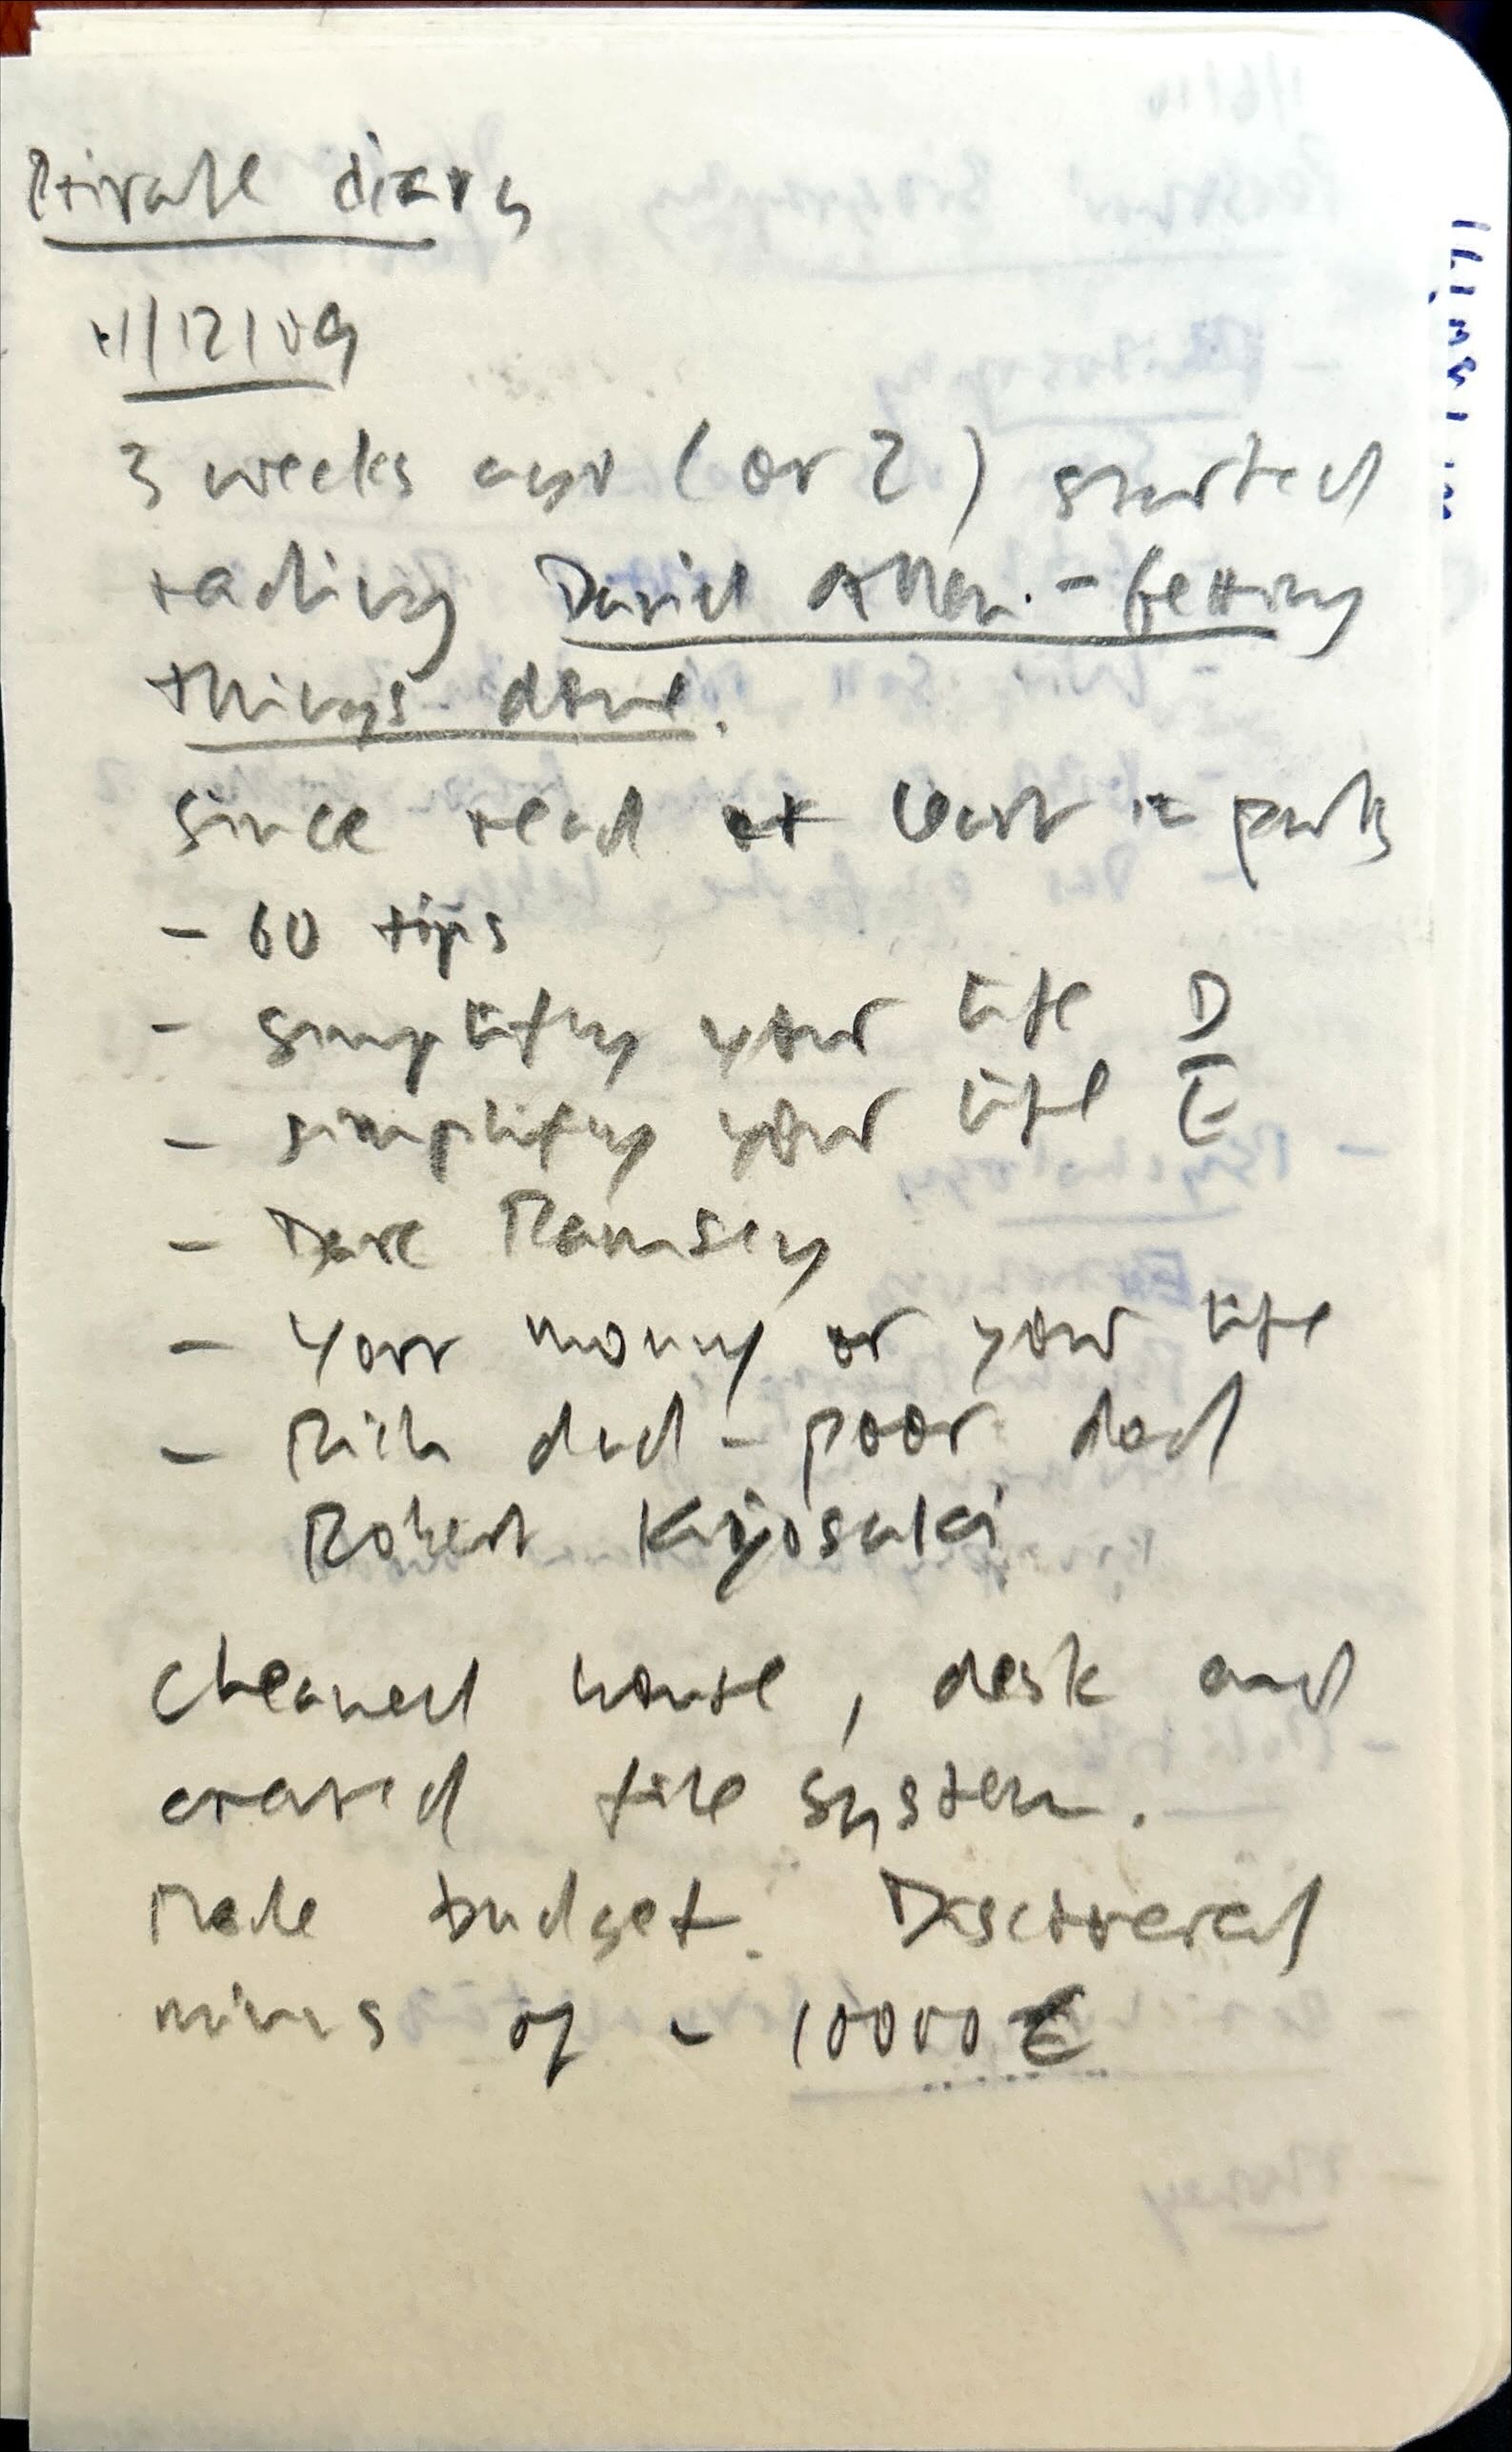 Private diary
11/12/09
3 weeks ago (or 2) started
rading David Allen. - Getting
things done.
Since read at least in parts
- 60 tips
- simplify your life D
- simplify your life E
- Dave Ramsey
- Your money or your life
- Rich dad - poor dad
Robert Kiyosaki
Cleaned house, desk and
created file system.
Made budget. Discovered
minus of - 10000 €